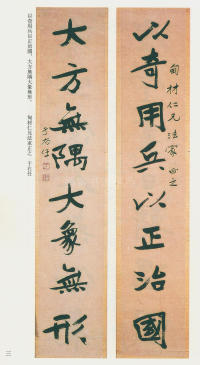 以奇用兵以正治國
甸材仁兄法家正之
大方無隅大象無形
于右任
以奇用兵以正治國，大方無隅大象無形。　甸材仁兄法家正之　于右任
三